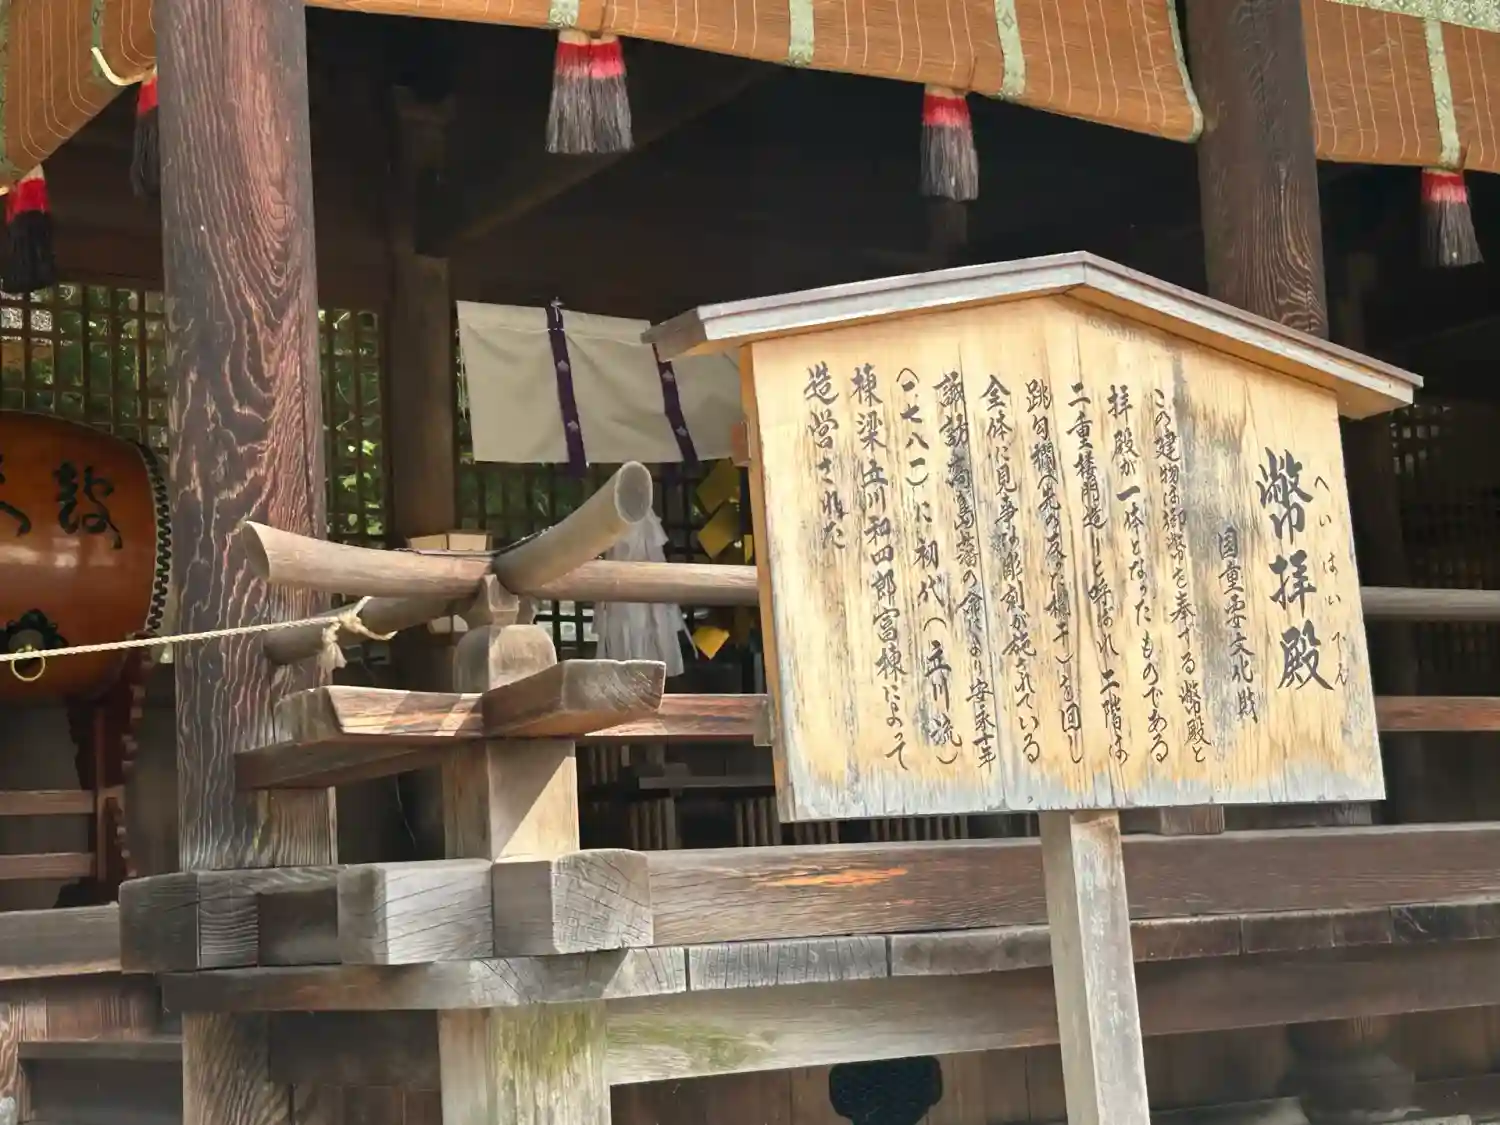 幣拝殿
へいはいでん
国重要文化財
この建物は御幣を奉ずる幣殿と
拝殿が一体となったものである
二重楼門造りと呼ばれ二階は
跳勾欄(先の反った欄干)を回し
全体に見事な彫刻が施されている
諏訪高島藩の命により安永十年
(一七八一)に初代(立川流)
棟梁立川和四郎富棟によって
造営された
鼓